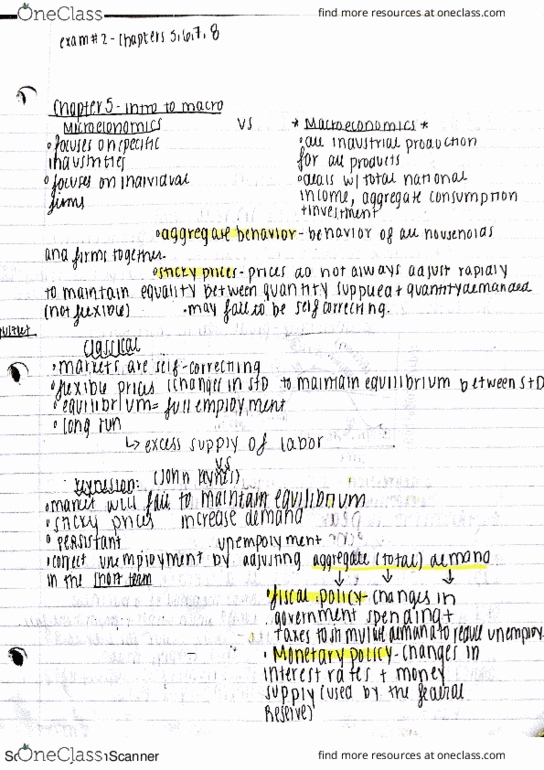 OneClass find more resources at oneclass.com
exam #2 - Chapters 5,6,7,8
Chapter 5 - Intro to macro
Microeconomics VS * Macroeconomics *
• focuses on specific industries
• focuses on individual firms
• all industrial production for all products
• deals w/ total national income, aggregate consumption + investment
• aggregate behavior - behavior of all households
and firms together.
• sticky prices - prices do not always adjust rapidly
to maintain equality between quantity supplied + quantity demanded
(not flexible) • may fail to be self correcting.
Classical
• markets are self-correcting
• flexible prices (changes in S+D to maintain equilibrium between S+D
• equilibrium = full employment
• long run
↳ excess supply of labor
vs
Keynesian: (John Keynes)
• market will fail to maintain equilibrium
• sticky prices increase demand
• persistant unemployment
• correct unemployment by adjusting aggregate (total) demand
in the short team
• fiscal policy - changes in
government spending +
taxes to stimulate demand to reduce unemploy.
• Monetary policy - changes in
interest rates + money
supply (used by the federal
Reserve)
OneClass Scanner find more resources at oneclass.com